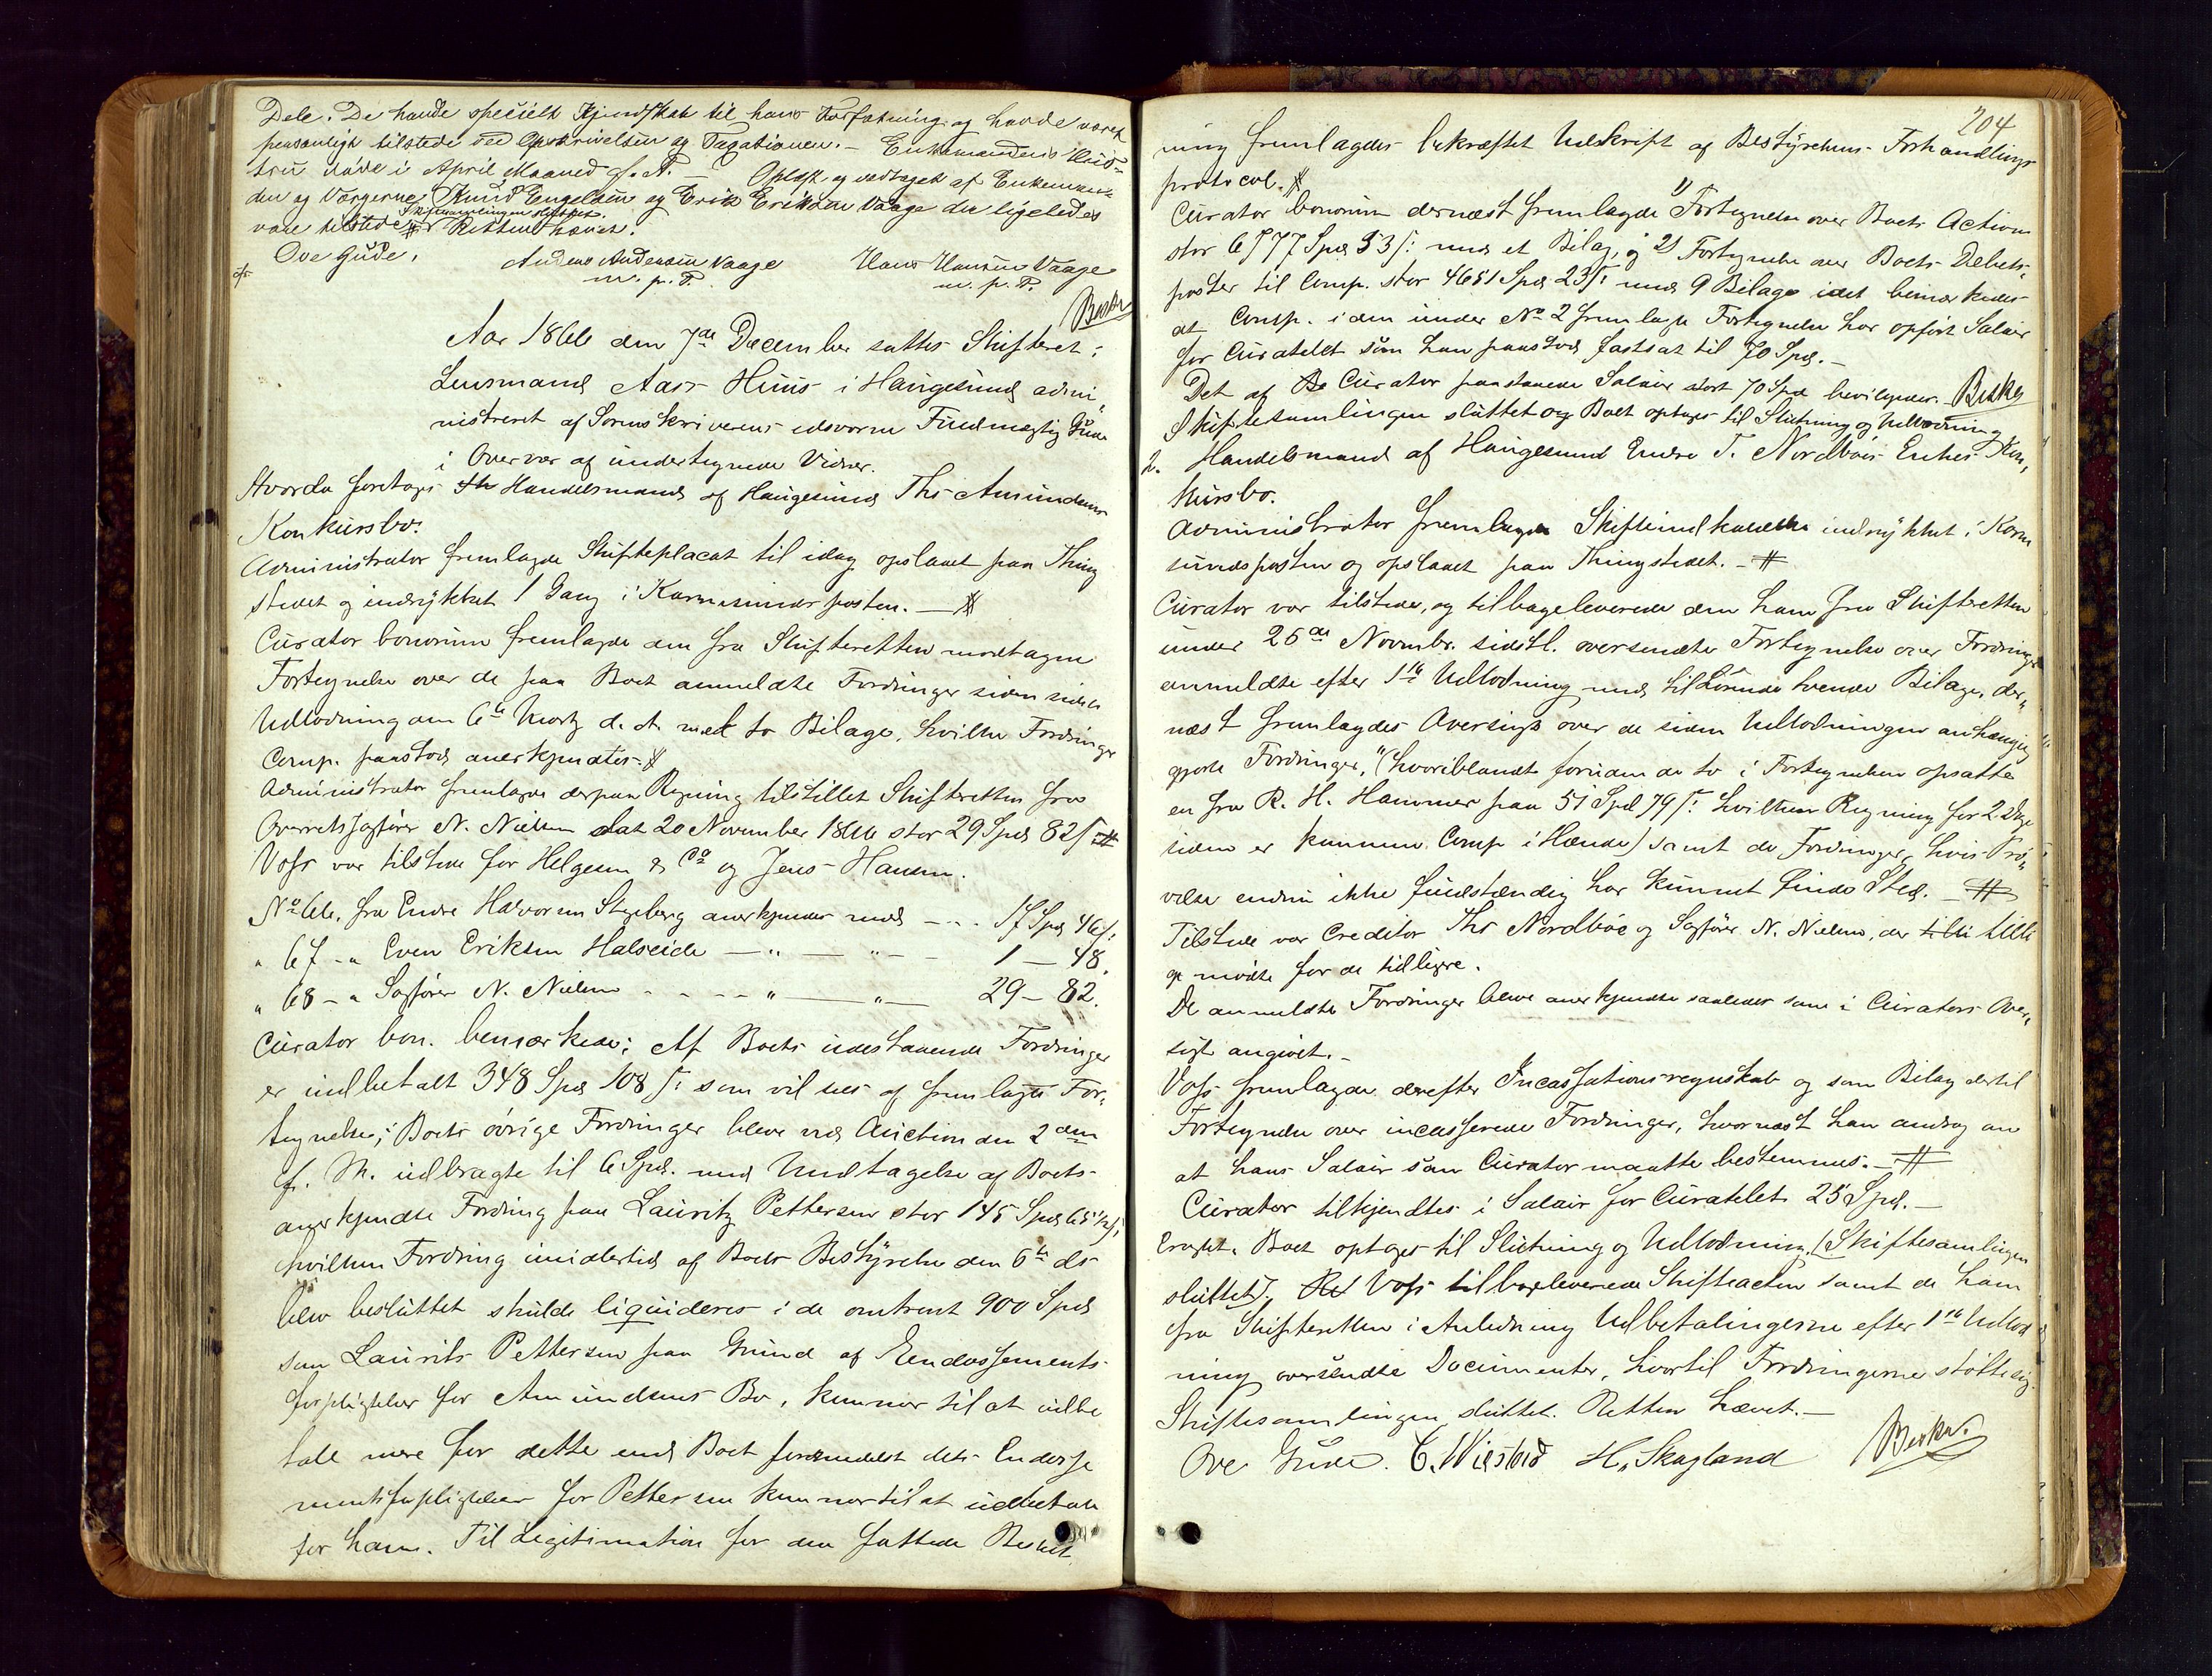 Dele. De havde specielt Kjendskab til hans Forfatning og havde været
personligt tilstede ved Opskrivelsen og Taxationen. – Enkemandens Hus-
tru døde i April Maaned f. A. – Oplæst og vedtaget af Enkeman-
den og Værgerne Knud Engelsen og Erik Eriksen Vaage der ligeledes
Skiftesamlingen sluttet.
vare tilstede # Retten hævet.
Ove Gude. Anders Andersen Vaage Hans Hansen Vaage
m. p. P. m. p. P.
Beskr
Aar 1866 den 7de December sattes Skifteret i
Lensmand Aars Huus i Haugesund admi-
nistreret af Sorenskriverens edsvorne Fuldmægtig Gude
i Overvær af undertegnede Vidner.
Hvorda foretoges Handelsmand af Haugesund Ths Amundsens
Konkursbo.
Administrator fremlagde Skifteplacat til idag opslaaet paa Thing
stedet og indrykket 1 Gang i Karmsundsposten. — #
Curator bonorum fremlagde den fra Skifteretten modtagne
Fortegnelse over de paa Boet anmeldte Fordringer siden sidste
Udlodning den 6te Marts d. A. med to Bilage, hvilke Fordringer
Comp. paastod anerkjendte. #
Administrator fremlagde derpaa Regning tilstillet Skifteretten fra
Overretssagfører N. Nielsen dat 20 November 1866 stor 29 Spd 82 s #
Voss var tilstede for Helgesen & Co og Jens Hansen.
No 66. fra Endre Halvorsen Stegberg anerkjendes med - - . 17 Spd 46 s.
" 67 - " Even Eriksen Halseide — " — " - - 1 — 48.
" 68 - " Sagfører N. Nielsen - - - - " — " — 29 – 82.
Curator bon. bemærkede: Af Boets udestaaende Fordringer
er indbetalt 348 Spd 108 s. som vil sees af fremlagte For-
tegnelse; Boets øvrige Fordringer bleve ved Auction den 2den
f. M. udbragte til 6 Spd. med Undtagelse af Boets
anerkjendte Fordring paa Lauritz Pettersen stor 145 Spd 65 1/2 s,
hvilken Fordring imidlertid af Boets Bestyrelse den 6te ds
blev besluttet skulde liquideres i de omtrent 900 Spd
som Laurits Pettersen paa Grund af Eendossements
forpligtelser for Amundsens Bo, kommer til at udbe
tale mere for dette end Boet formedelst dets Endosse
mentsforpligtelser for Pettersen kommer til at udbetale
for ham. Til Legitimation for den fattede Beslut
204
ning fremlagdes bekræftet Udskrift af Bestyrelsens Forhandlings
protocol. #
Curator bonorum dernæst fremlagde 1) Fortegnelse over Boets Activa
stor 6577 Spd 53 s: med et Bilag, og 2) Fortegnelse over Boets Debets-
poster til Comp. stor 4651 Spd 23 s. med 9 Bilage idet bemærkedes
at Comp. i den under No 2 fremlagte Fortegnelse har opført Salair
for Curatelet som han paastod fastsat til 70 Spd. –
Det af Curator paastaaede Salair stort 70 Spd bevilgedes. Beskr
Skiftesamlingen sluttet og Boet optoges til Slutning og Udlodning
2. Handelsmand af Haugesund Endre T. Nordbøes Enkes Kon-
kursbo.
Administrator fremlagde Skifteindkaldelse indrykket i Karm
sundsposten og opslaaet paa Thingstedet. – #
Curator var tilstede, og tilbageleverede den ham fra Skifteretten
under 26de Novembr. sidstl. oversendte Fortegnelse over Fordringer
anmeldte efter 1ste Udlodning med tilhørende tvende Bilage, der-
næst fremlagdes Oversigt over de siden Udlodningen anhængig
gjorte Fordringer, (hvoriblandt foruden de to i Fortegnelsen opsatte
en fra R. H. Hammer paa 51 Spd 79 s. hvilken Regning for 2 Dage
siden er kommen Comp i Hænde) samt de Fordringer, hvis Prø-
velse endnu ikke fuldstændig har kunnet finde Sted. – #
Tilstede var Creditor Ths Nordbøe og Sagfører N. Nielsen, der tilli
ge mødte for de tidligere.
De anmeldte Fordringer bleve anerkjendte saaledes som i Curators Over-
sigt angivet. –
Voss fremlagde derefter Incassationsregnskab og som Bilag dertil
Fortegnelse over incasserede Fordringer, hvornæst han androg om
at hans Salair som Curator maatte bestemmes. – #
Curator tilkjendtes i Salair for Curatelet 25 Spd. –
Eragtet. Boet optages til Slutning og Udlodning. (Skiftesamlingen
sluttet). Voss tilbageleverede Skifteacten samt de ham
fra Skifteretten i Anledning Udbetalingerne efter 1ste Udlod
ning oversendte Documenter, hvortil Fordringerne støtte sig.
Skiftesamlingen sluttet. Retten hævet. –
Ove Gude. C. Wiestad H. Skagland Beskr.